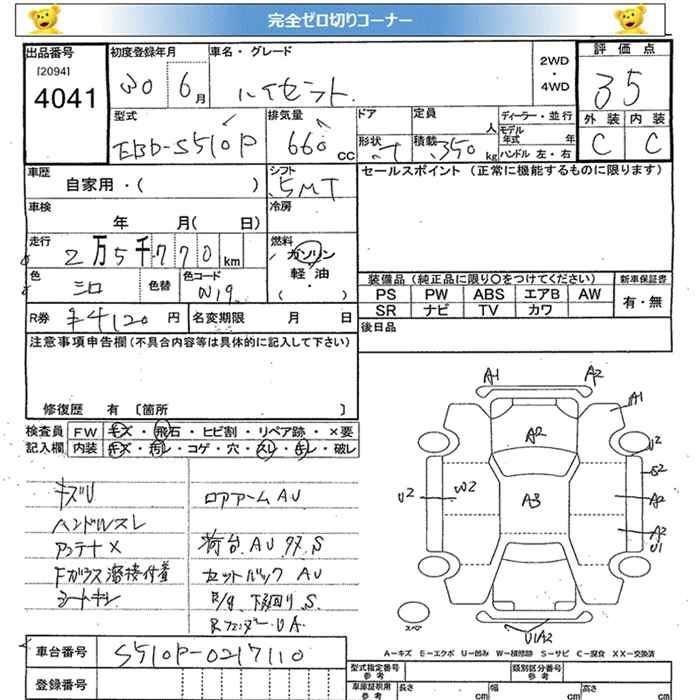 完全ゼロ切りコーナー
出品番号
[2094]
4041
初度登録年月
30 6月
車名・グレード
ハイゼット
2WD
・
4WD
評価点
3.5
外装 内装
C C
型式
EBD-S510P
排気量
660cc
ドア
形状
定員
人
積載
350kg
ディーラー・並行
モデル年式 年
ハンドル 左・右
車歴
自家用・( )
シフト
5MT
セールスポイント (正常に機能するものに限ります)
車検
年 月( 日)
冷房
走行
2万5千770km
燃料
ガソリン
軽油
( )
色
シロ
色替
色コード
W19
装備品 (純正品に限り〇をつけてください)
新車保証書
PS PW ABS エアB AW
SR ナビ TV カワ
有・無
R券 ¥4120円
名変期限 月 日
後日品
注意事項申告欄 (不具合内容等は具体的に記入して下さい)
修復歴 有 〔箇所 〕
検査員記入欄
FW キズ・飛石・ヒビ割・リペア跡・×要
内装 キズ・汚レ・コゲ・穴・スレ・キレ・破レ
キズU
ハンドルスレ
アンテナ×
Fガラス溶接付着
シートキレ
ロアアームAU
荷台AU クサS
セットバックAU
下廻りS
RフェンダーUA
A1
A2
A1
A2
U2
S2
U2
W2
A3
A2
A2
U1
U1A2
スペ
A-キズ E-エクボ U-凹み W-補修跡 S-サビ C-腐食 XX-交換済
車台番号 S510P-0217110
登録番号
型式指定番号
参考
類別区分番号
参考
車庫証明用
参考
長さ cm
幅 cm
高さ cm